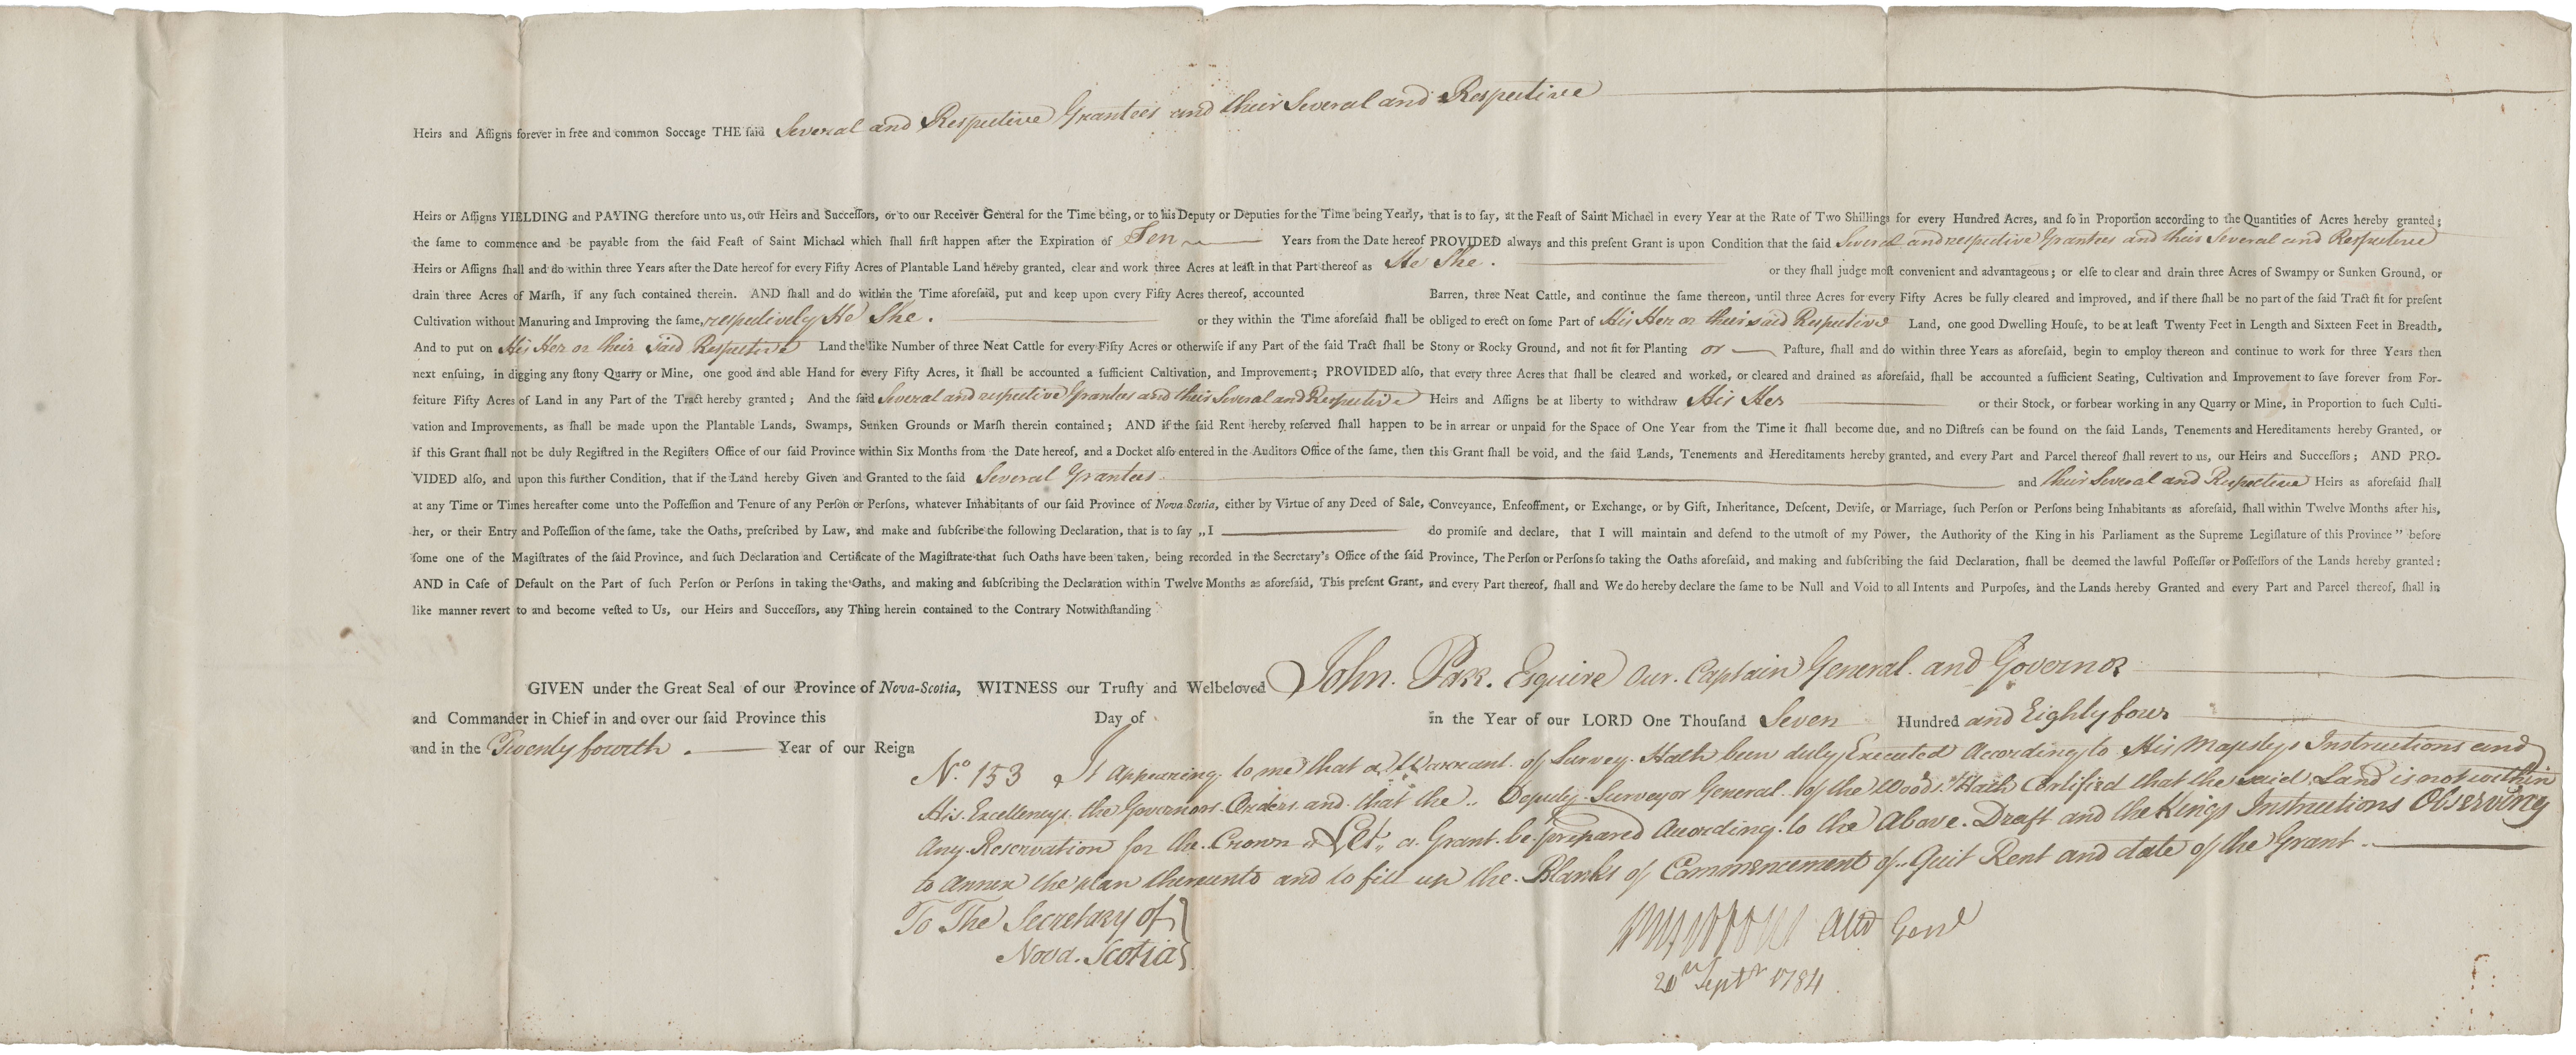 Heirs and Aſſigns forever in free and common Soccage THE ſaid Several and Respective Grantees and their Several and Respective
Heirs or Aſſigns YIELDING and PAYING therefore unto us, our Heirs and Succeſſors, or to our Receiver General for the Time being, or to his Deputy or Deputies for the Time being Yearly, that is to ſay, at the Feaſt of Saint Michael in every Year at the Rate of Two Shillings for every Hundred Acres, and ſo in Proportion according to the Quantities of Acres hereby granted;
the ſame to commence and be payable from the ſaid Feaſt of Saint Michael which ſhall firſt happen after the Expiration of Ten Years from the Date hereof PROVIDED always and this preſent Grant is upon Condition that the ſaid Several and respective Grantees and their Several and Respective
Heirs or Aſſigns ſhall and do within three Years after the Date hereof for every Fifty Acres of Plantable Land hereby granted, clear and work three Acres at leaſt in that Part thereof as He She. or they ſhall judge moſt convenient and advantageous; or elſe to clear and drain three Acres of Swampy or Sunken Ground, or
drain three Acres of Marſh, if any ſuch contained therein. AND ſhall and do within the Time aforeſaid, put and keep upon every Fifty Acres thereof, accounted Barren, three Neat Cattle, and continue the ſame thereon, until three Acres for every Fifty Acres be fully cleared and improved, and if there ſhall be no part of the ſaid Tract fit for preſent
Cultivation without Manuring and Improving the ſame, respectively He She. or they within the Time aforeſaid ſhall be obliged to erect on ſome Part of His Her or their said Respective Land, one good Dwelling Houſe, to be at leaſt Twenty Feet in Length and Sixteen Feet in Breadth,
And to put on His Her or their Said Respective Land the like Number of three Neat Cattle for every Fifty Acres or otherwiſe if any Part of the ſaid Tract ſhall be Stony or Rocky Ground, and not fit for Planting or Paſture, ſhall and do within three Years as aforeſaid, begin to employ thereon and continue to work for three Years then
next enſuing, in digging any ſtony Quarry or Mine, one good and able Hand for every Fifty Acres, it ſhall be accounted a ſufficient Cultivation, and Improvement; PROVIDED alſo, that every three Acres that ſhall be cleared and worked, or cleared and drained as aforeſaid, ſhall be accounted a ſufficient Seating, Cultivation and Improvement to ſave forever from For-
feiture Fifty Acres of Land in any Part of the Tract hereby granted; And the ſaid Several and respective Grantees and their Several and Respective Heirs and Aſſigns be at liberty to withdraw His Her or their Stock, or forbear working in any Quarry or Mine, in Proportion to ſuch Culti-
vation and Improvements, as ſhall be made upon the Plantable Lands, Swamps, Sunken Grounds or Marſh therein contained; AND if the ſaid Rent hereby reſerved ſhall happen to be in arrear or unpaid for the Space of One Year from the Time it ſhall become due, and no Diſtreſs can be found on the ſaid Lands, Tenements and Hereditaments hereby Granted, or
if this Grant ſhall not be duly Regiſtred in the Regiſters Office of our ſaid Province within Six Months from the Date hereof, and a Docket alſo entered in the Auditors Office of the ſame, then this Grant ſhall be void, and the ſaid Lands, Tenements and Hereditaments hereby granted, and every Part and Parcel thereof ſhall revert to us, our Heirs and Succeſſors; AND PRO-
VIDED alſo, and upon this further Condition, that if the Land hereby Given and Granted to the ſaid Several Grantees and their Several and Respective Heirs as aforeſaid ſhall
at any Time or Times hereafter come unto the Poſſeſſion and Tenure of any Perſon or Perſons, whatever Inhabitants of our ſaid Province of Nova Scotia, either by Virtue of any Deed of Sale, Conveyance, Enfeoffment, or Exchange, or by Gift, Inheritance, Deſcent, Deviſe, or Marriage, ſuch Perſon or Perſons being Inhabitants as aforeſaid, ſhall within Twelve Months after his,
her, or their Entry and Poſſeſſion of the ſame, take the Oaths, preſcribed by Law, and make and ſubſcribe the following Declaration, that is to ſay „I do promiſe and declare, that I will maintain and defend to the utmoſt of my Power, the Authority of the King in his Parliament as the Supreme Legiſlature of this Province" before
ſome one of the Magiſtrates of the ſaid Province, and ſuch Declaration and Certificate of the Magiſtrate that ſuch Oaths have been taken, being recorded in the Secretary's Office of the ſaid Province, The Perſon or Perſons ſo taking the Oaths aforeſaid, and making and ſubſcribing the ſaid Declaration, ſhall be deemed the lawful Poſſeſſor or Poſſeſſors of the Lands hereby granted:
AND in Caſe of Default on the Part of ſuch Perſon or Perſons in taking the Oaths, and making and ſubſcribing the Declaration within Twelve Months as aforeſaid, This preſent Grant, and every Part thereof, ſhall and We do hereby declare the ſame to be Null and Void to all Intents and Purpoſes, and the Lands hereby Granted and every Part and Parcel thereof, ſhall in
like manner revert to and become veſted to Us, our Heirs and Succeſſors, any Thing herein contained to the Contrary Notwithſtanding
GIVEN under the Great Seal of our Province of Nova-Scotia, WITNESS our Truſty and Welbeloved John. Parr. Esquire Our. Captain General. and Governor
and Commander in Chief in and over our ſaid Province this Day of in the Year of our LORD One Thouſand Seven Hundred and Eighty four
and in the Twenty fourth. Year of our Reign
No. 153 It Appearing to me that a Warrant of Survey Hath been duly Executed According to His Majestys Instructions and
His Excellencys the Governors Orders and that the Deputy Surveyor General of the Woods Hath Certified that the said Land is not within
Any Reservation for the Crown Let a Grant be prepared According to the Above Draft and the Kings Instructions Observing
to annex the plan thereunto and to fill up the Blanks of Commencement of Quit Rent and date of the Grant
To The Secretary of
Nova. Scotia
Atto Genl
20th Septr 1784